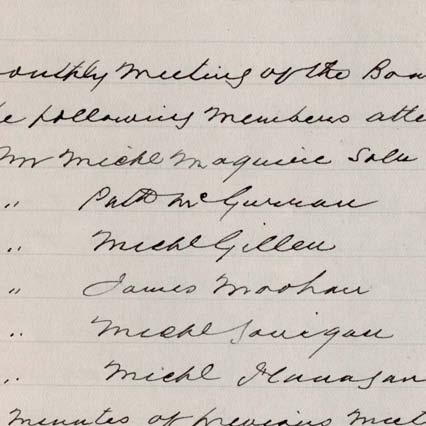 onthly Meeting of the Boa
e following Members atte
Mr Michl Maguire Solr
" Patk McGurman
" Michl Gillen
" James Moohan
" Michl
" Michl Flanagan
Minutes of previous Meet